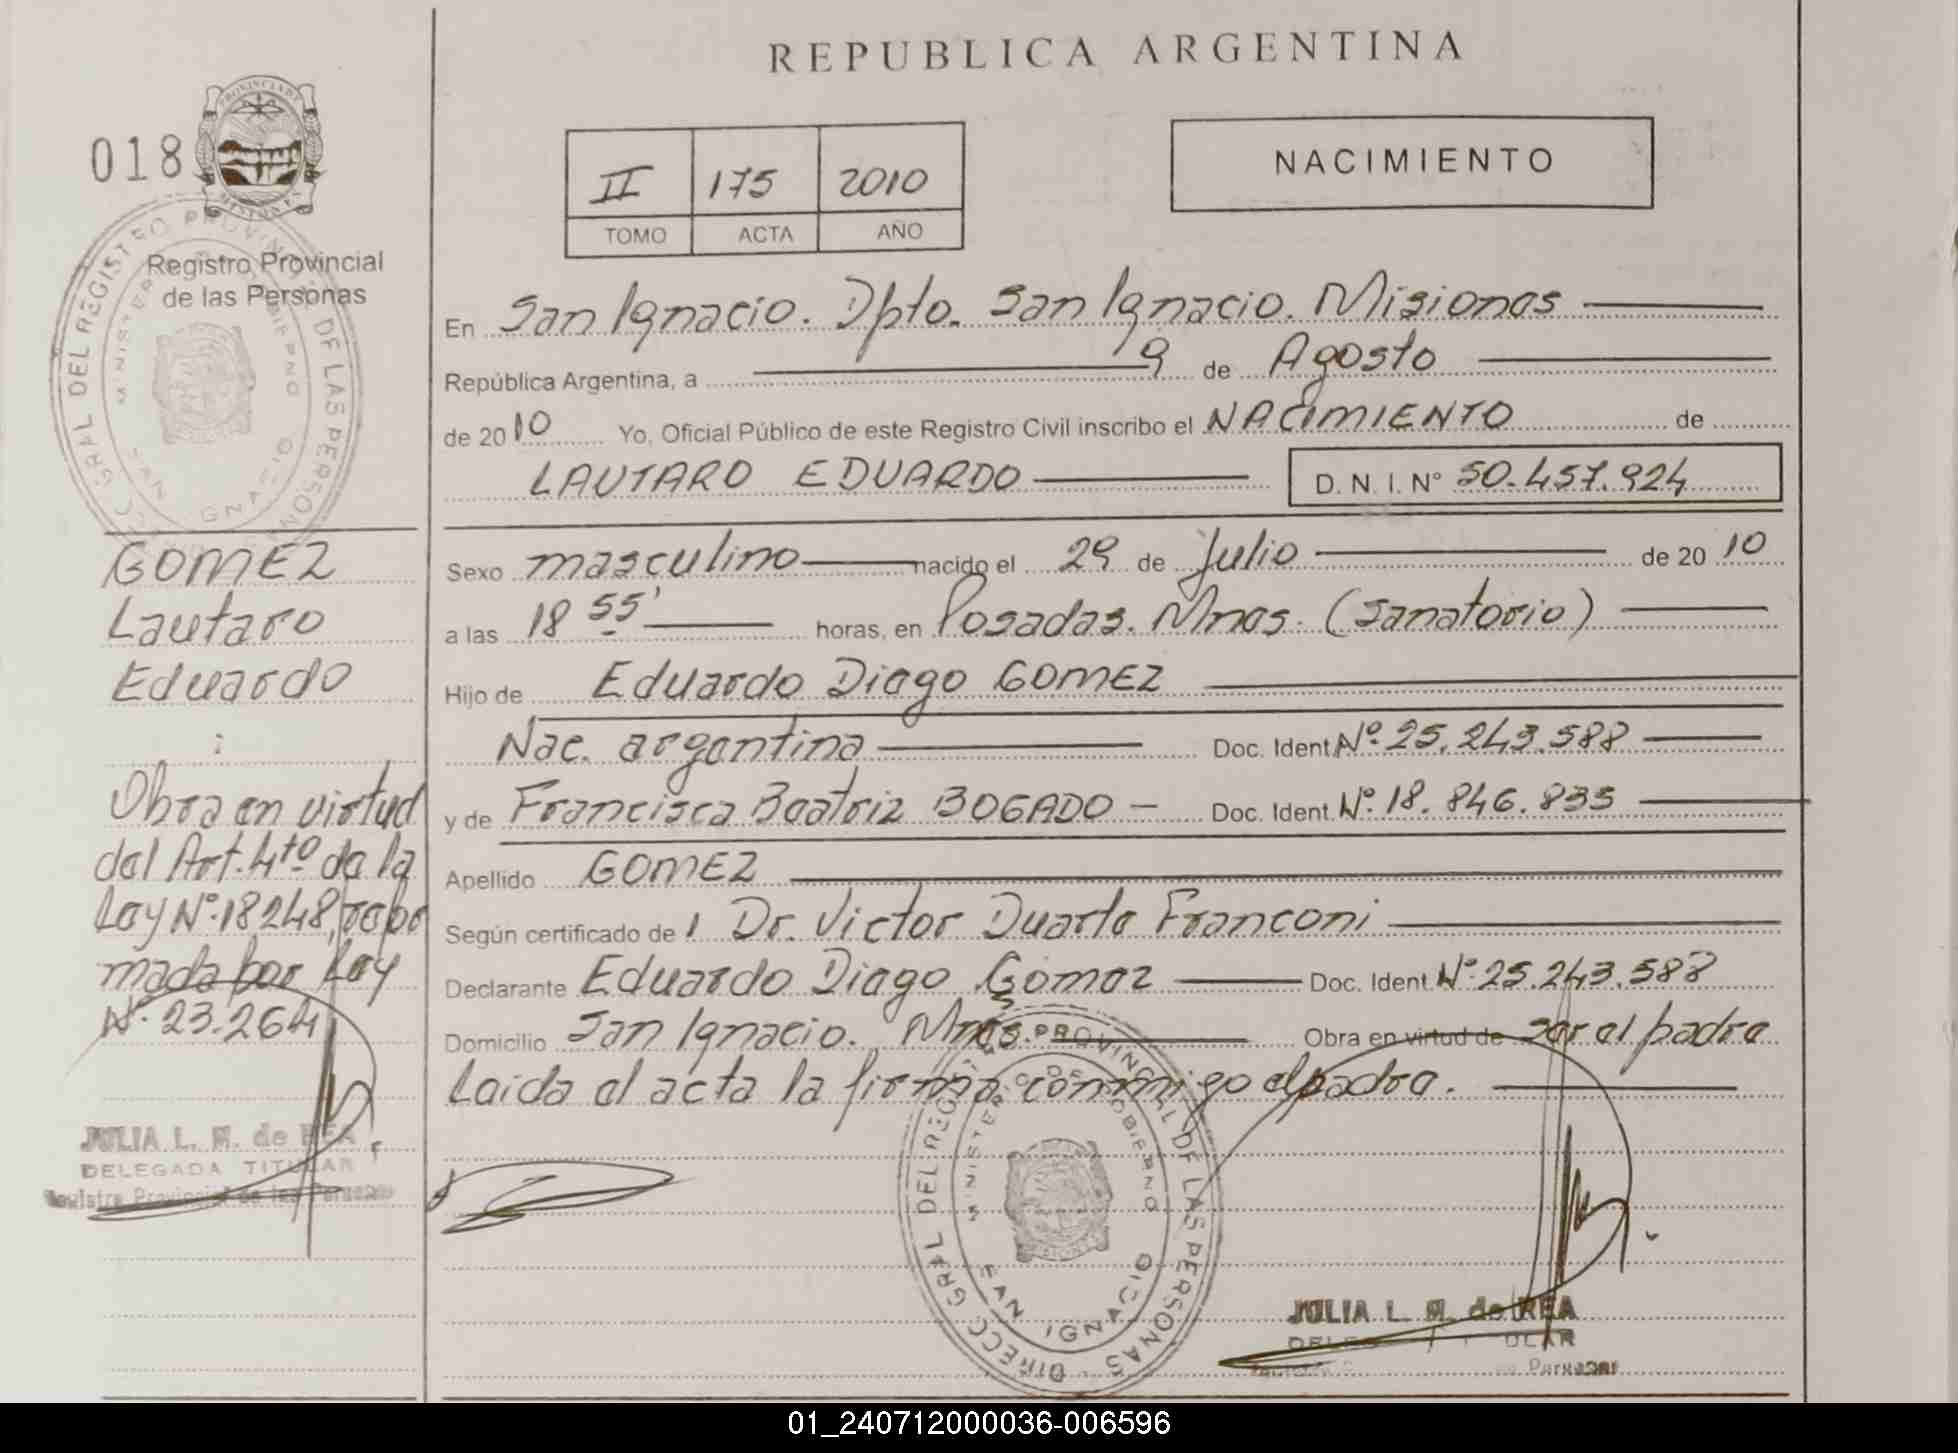 REPUBLICA ARGENTINA
018
PROVINCIA DE
MISIONES
II 175 2010
TOMO ACTA AÑO
NACIMIENTO
Registro Provincial
de las Personas
DIRECC GRAL DEL REGISTRO PROVINCIAL DE LAS PERSONAS
MINISTERIO DE GOBIERNO
SAN IGNACIO
En San Ignacio. Dpto. San Ignacio. Misiones
República Argentina, a 9 de Agosto
de 2010 Yo, Oficial Público de este Registro Civil inscribo el NACIMIENTO de
LAUTARO EDUARDO D. N. I. N° 50.457.924
GOMEZ
Lautaro
Eduardo
:
Obra en virtud
del Art. 4to de la
Ley Nº 18248, refor
mada por Ley
Nº 23.264
JULIA L. M. de REA
DELEGADA TITULAR
Registro Provincial de las Personas
Sexo masculino nacido el 29 de Julio de 2010
a las 18 55' horas, en Posadas. Mnes. (Sanatorio)
Hijo de Eduardo Diego GOMEZ
Nac. argentina Doc. Ident Nº 25.243.588
y de Francisca Beatriz BOGADO - Doc. Ident. Nº 18.846.835
Apellido GOMEZ
Según certificado de l Dr. Victor Duarte Franconi
Declarante Eduardo Diego Gómez Doc. Ident. Nº 25.243.588
Domicilio San Ignacio. Mnes. Obra en virtud de ser el padre
Leida el acta la firma conmigo el padre.
DIRECC GRAL DEL REGISTRO PROVINCIAL DE LAS PERSONAS
MINISTERIO DE GOBIERNO
SAN IGNACIO
JULIA L. M. de REA
01_240712000036-006596